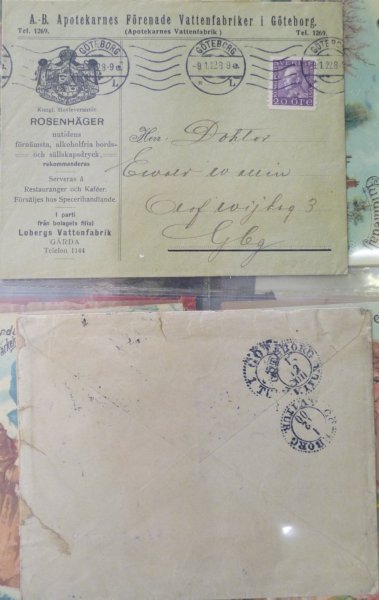 A.-B. Apotekarnes Förenade Vattenfabriker i Göteborg.
Tel. 1269. (Apotekarnes Vattenfabrik) Tel. 1269.
GÖTEBORG
GÖTEBORG
GÖTEBORG
-9.1.22 8-9 e.
L.
L.
SVERIGE
20 ÖRE
Kungl. Hovleverantör.
ROSENHÄGER
nutidens
förnämsta, alkoholfria bords-
och sällskapsdryck,
rekommenderas
Serveras å
Restauranger och Kaféer.
Försäljes hos Specerihandlande.
I parti
från bolagets filial
Lobergs Vattenfabrik
GÅRDA
Telefon 1144
Herr Doktor
Ewald Wallin
3
Gbg
GÖTEBORG
GÖTEBORG